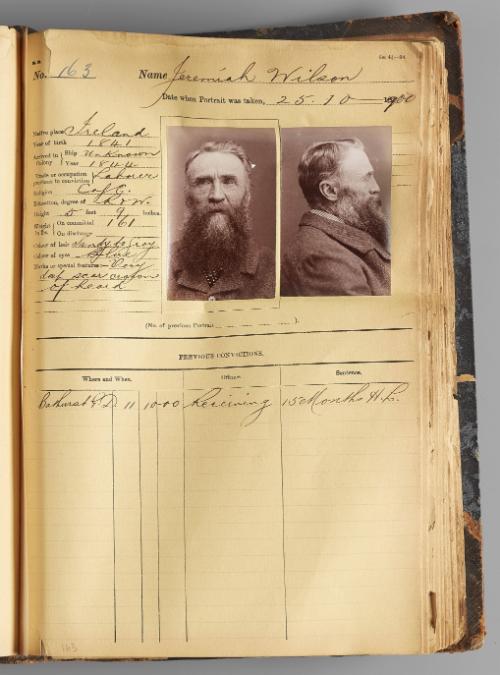 No. 163 Name Jeremiah Wilson
Date when Portrait was taken, 25-10-1900
Native place Ireland
Year of birth 1841
Arrived in Colony Ship Unknown
Year 1844
Trade or occupation previous to conviction Laborer
Religion C of E.
Education, degree of R & W.
Height 5 feet 9 inches.
Weight in lbs. On committal 161
On discharge
Colour of hair Sandy to grey
Colour of eyes Blue
Marks or special features:—
scar
of head
(No. of previous Portrait ).
PREVIOUS CONVICTIONS.
Where and When. Offence. Sentence.
Bathurst 11 10 00 Receiving 15 Months H.L.
163